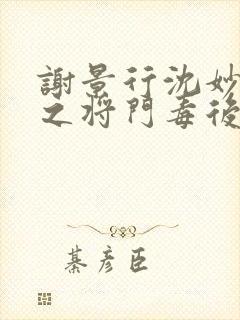 謝景行沈妙
之將門毒後
綦彥臣